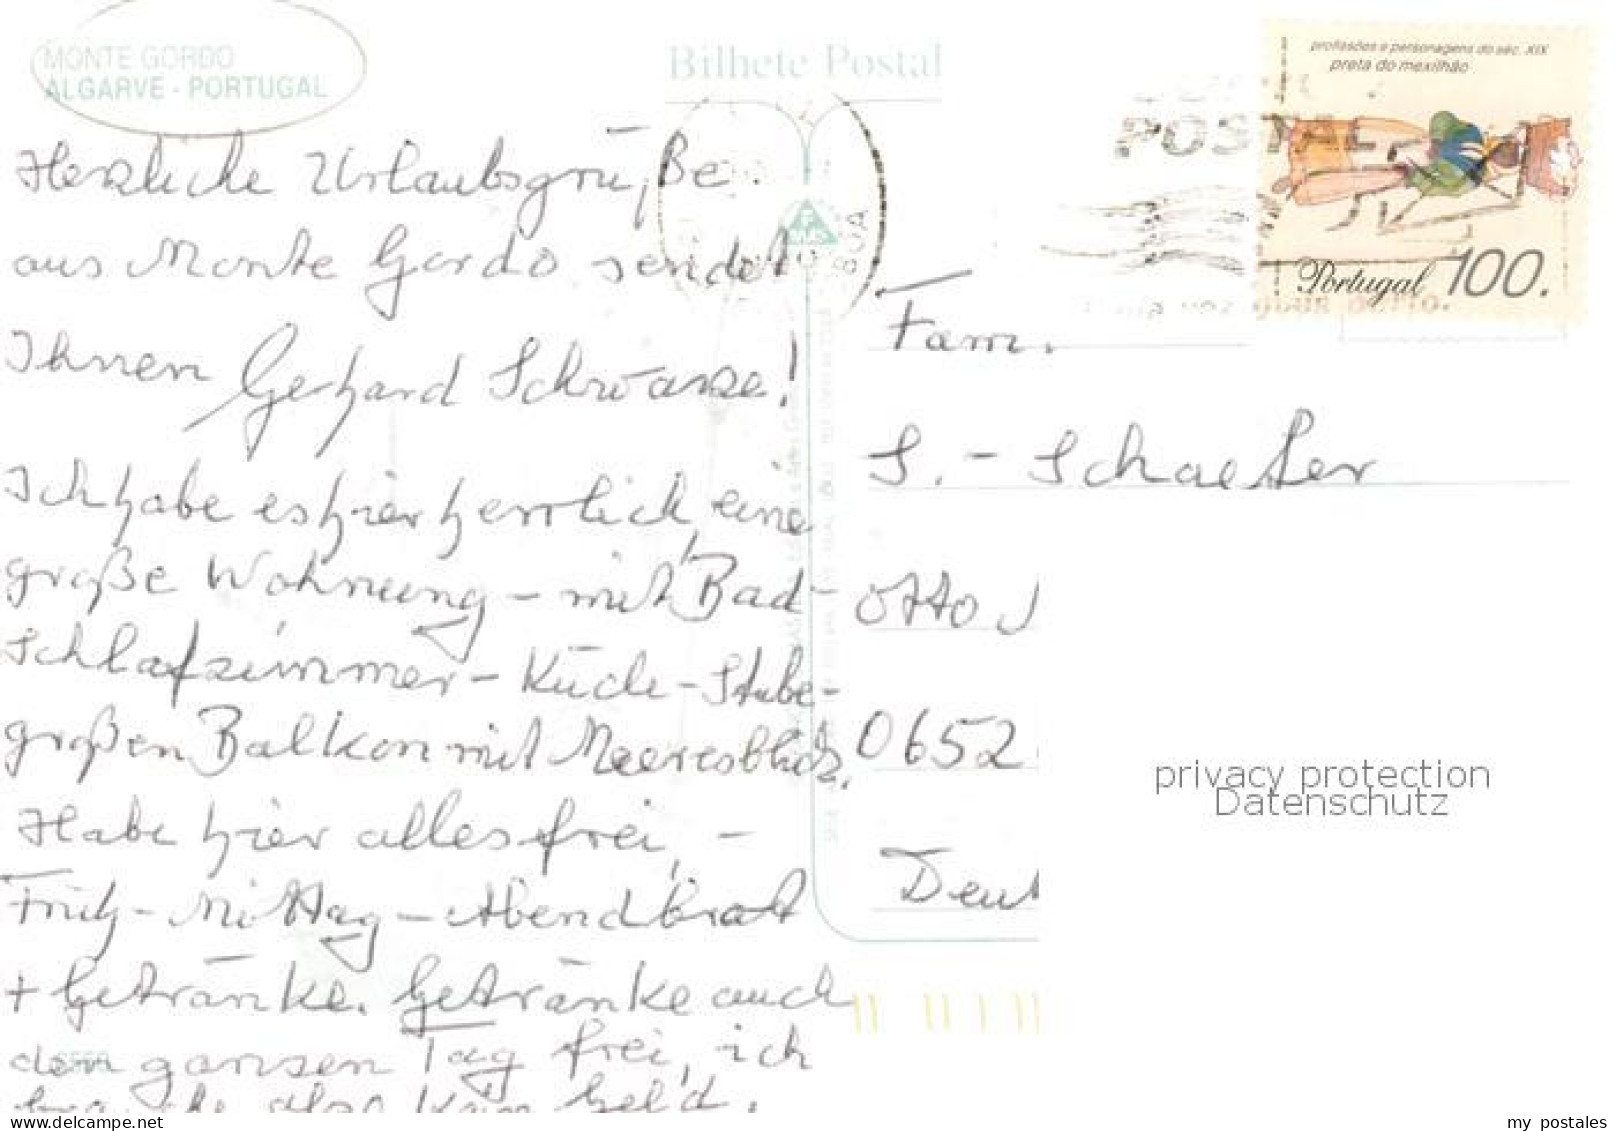 MONTE GORDO
ALGARVE - PORTUGAL
Bilhete Postal
profissões e personagens do séc. XIX
preta do mexilhão
POSTAL
Portugal 100.
Herzliche Urlaubsgrüße.
aus Monte Gordo sendet
Ihnen Gerhard Schwarze!
Ich habe es hier herrlich, eine
große Wohnung - mit Bad -
Schlafzimmer - Küche - Stube -
großen Balkon mit Meeresblick.
Habe hier alles frei, -
Früh - Mittag - Abendbrot
+ Getränke. Getränke auch
den ganzen Tag frei, ich
brauche also kein Geld.
Fam.
S. - Schaefer
Otto
0652
Deut
privacy protection
Datenschutz
delcampe.net
my postales